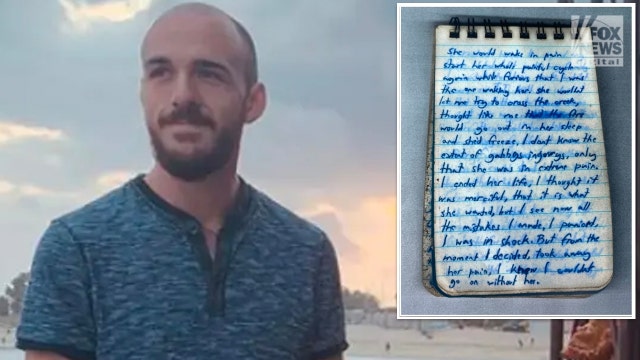 FOX
NEWS
digital
She would wake in pain
start her whole painful cycle
again while furious that I was
the one waking her. She wouldnt
let me try to cross the creek,
thought like me that the fire
would go out in her sleep
and shed freeze, I dont know the
extent of gabbys ingurys, only
that she was in extreme pain.
I ended her life, I thought it
was merciful, that it is what
she wanted, but I see now all
the mistakes I made, I panicked,
I was in shock. But from the
moment I decided, took away
her pain, I knew I wouldnt
go on without her.